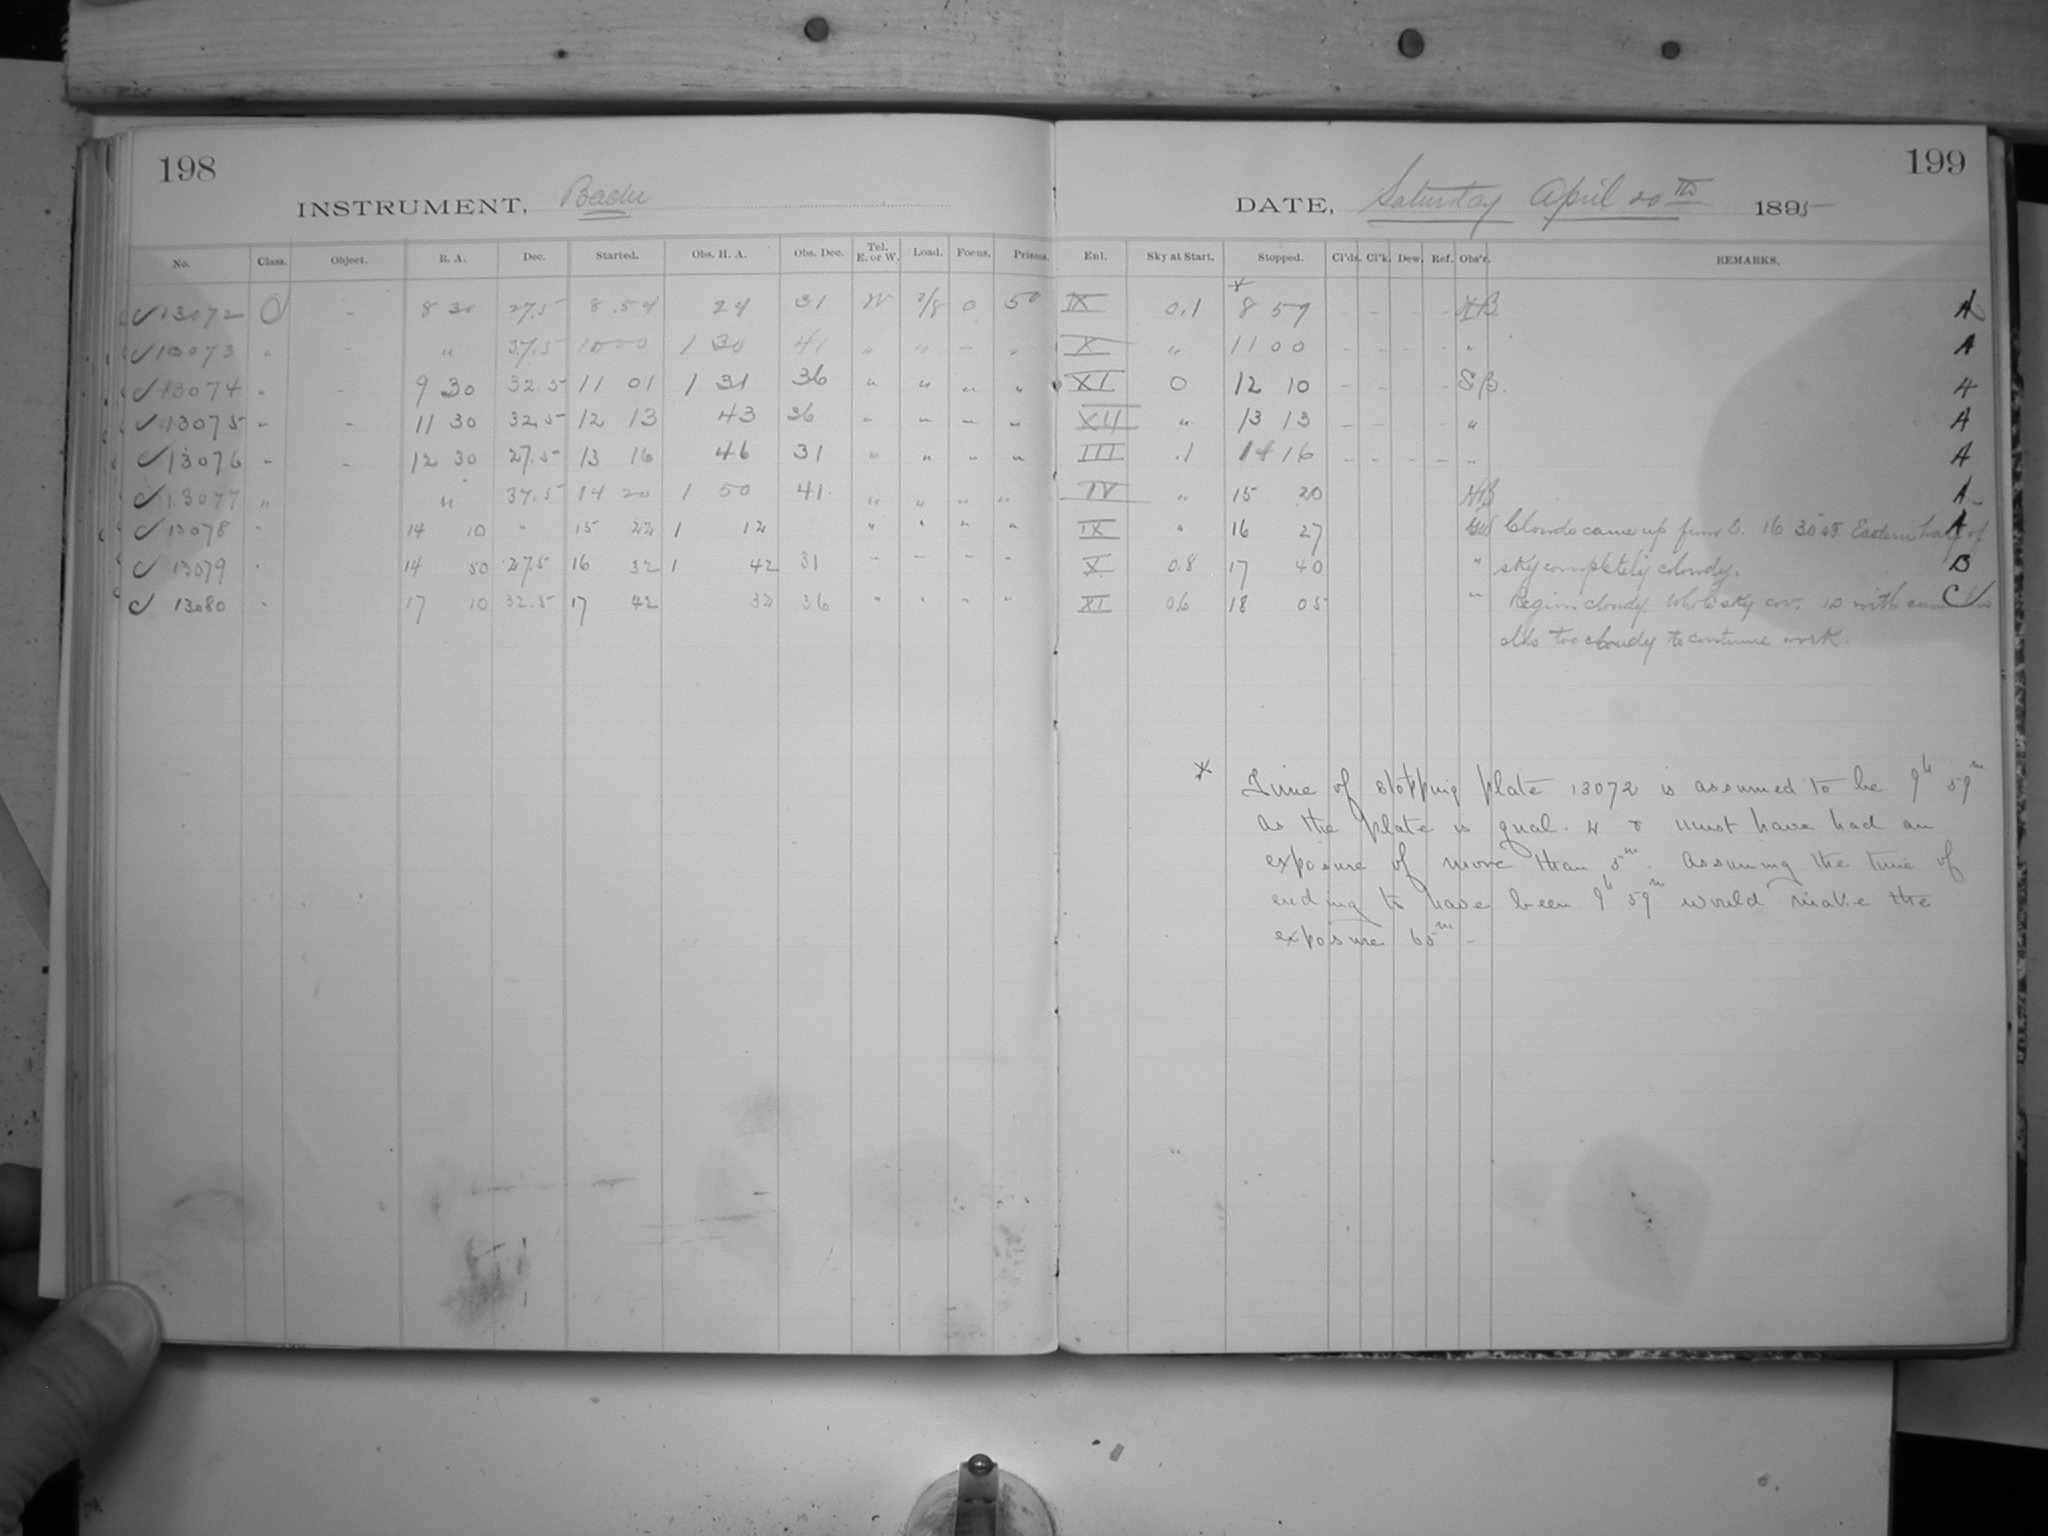 198
199
INSTRUMENT, Bache
DATE, Saturday April 20th 1895
No. Class. Object. R. A. Dec. Started. Obs. H. A. Obs. Dec. Tel. E. or W. Load. Focus. Prisms. Enl. Sky at Start. Stopped. Cl'ds. Cl'k. Dew. Ref. Obs'r. REMARKS.
✓ 13072 O - 8 30 27.5 8.54 24 31 W 7/8 0 50 IX 0.1 * 8 59 - - - - HB. A
✓ 13073 " - " 37.5 10 00 1 30 41 " " " " X " 11 00 - - - - " A
✓ 13074 " - 9 30 32.5 11 01 1 31 36 " " " " XI 0 12 10 - - - SB. A
✓ 13075 " - 11 30 32.5 12 13 43 36 " " " " XII " 13 13 - - - " A
✓ 13076 " - 12 30 27.5 13 16 46 31 " " " " III .1 14 16 - - - - " A
✓ 13077 " " 37.5 14 20 1 50 41 " " " " IV " 15 20 HB A
✓ 13078 " 14 10 " 15 22 1 12 " " " " IX " 16 27 Clouds came up from E. 16 30 Eastern half of A
✓ 13079 " 14 50 27.5 16 32 1 42 31 " " " " X 0.8 17 40 " sky completely cloudy. B
✓ 13080 " 17 10 32.5 17 42 32 36 " " " " XI 0.6 18 05 " Region cloudy. Whole sky cov. 10 with C
clds too cloudy to continue work.
* Time of stopping plate 13072 is assumed to be 9h 59m
as the plate is qual. 4 & must have had an
exposure of more than 5m. Assuming the time of
ending to have been 9h 59m would make the
exposure 65m -